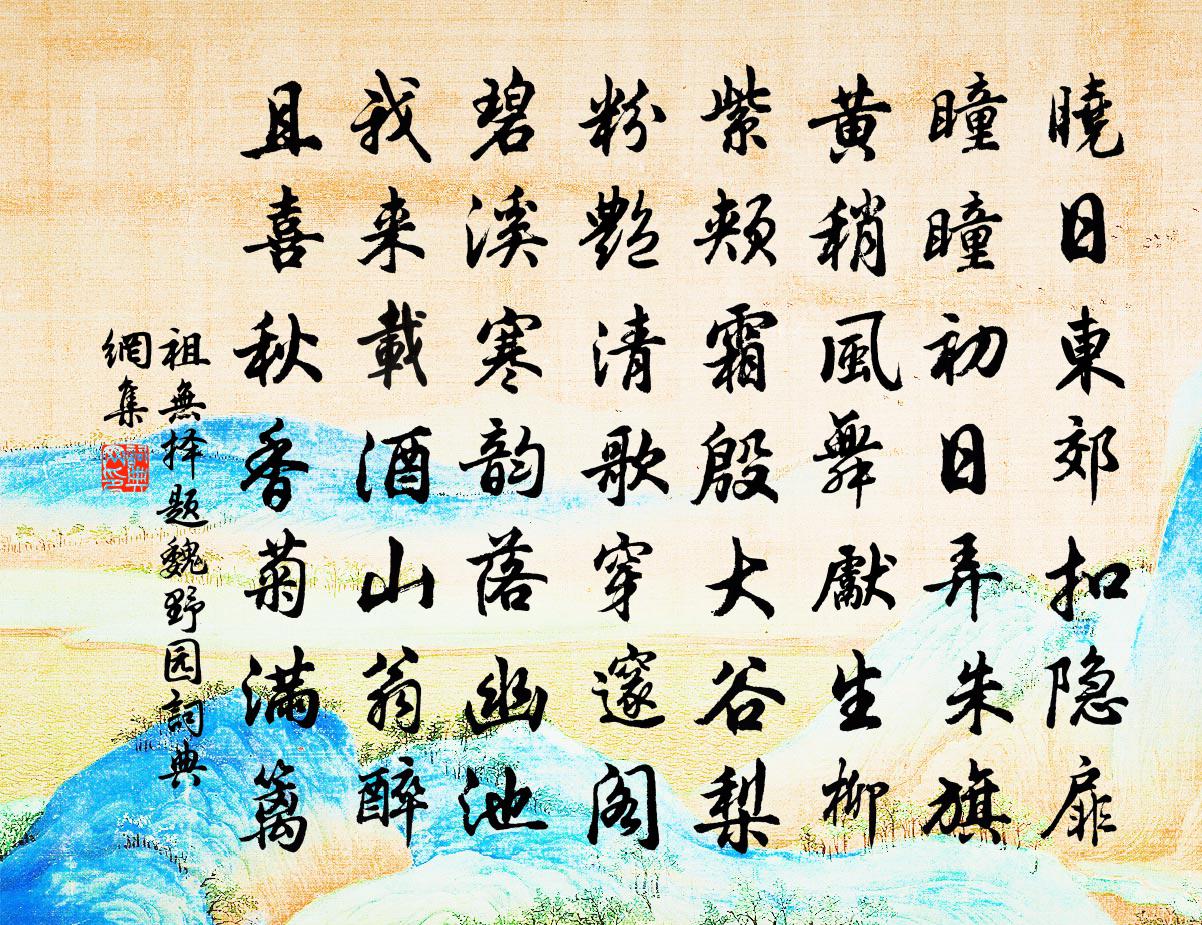 曉日東郊扣隐扉
曈曈初日弄朱旗
黄稍風舞獻生柳
紫頰霜殷大谷梨
粉艶清歌穿邃阁
碧溪寒韵落幽池
我来載酒山翁醉
且喜秋香菊满篱
祖無择題魏野园詞典
網集